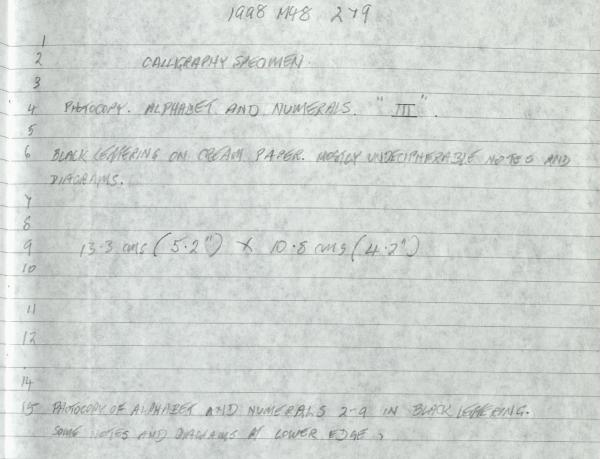 1998 M48 279
1
2 CALLIGRAPHY SPECIMEN.
3
4 PHOTOCOPY. ALPHABET AND NUMERALS. "III".
5
6 BLACK LETTERING ON CREAM PAPER. MOSTLY UNDECIPHERABLE NOTES AND
DIAGRAMS.
7
8
9 13.3 cms (5.2") X 10.8 cms (4.2")
10
11
12
14
15 PHOTOCOPY OF ALPHABET AND NUMERALS 2-9 IN BLACK LETTERING.
SOME NOTES AND DIAGRAMS AT LOWER EDGE.